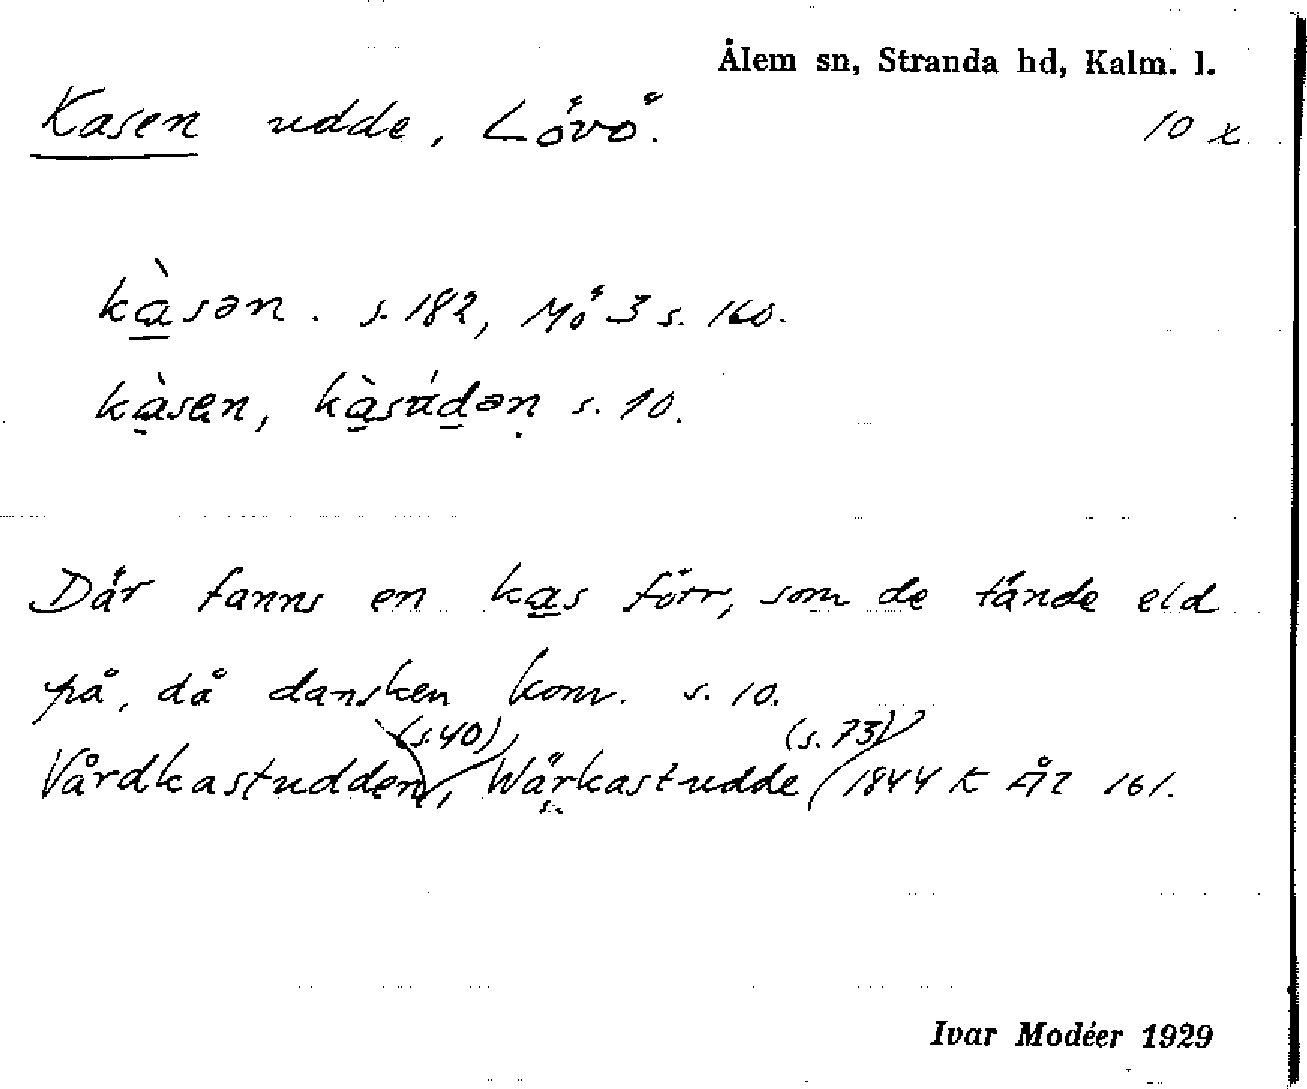 Ålem sn, Stranda hd, Kalm. l.
Kasen udde, Lövö. 10 x
kàsən. s. 182, Mö 3 s. 160.
kàsen, kàsúdən s. 10.
Där fanns en kas förr, som de tände eld
på, då dansken kom. s. 10.
(s. 40) (s. 73)
Vårdkastudden, Wärkastudde 1844 K 161.
Ivar Modéer 1929